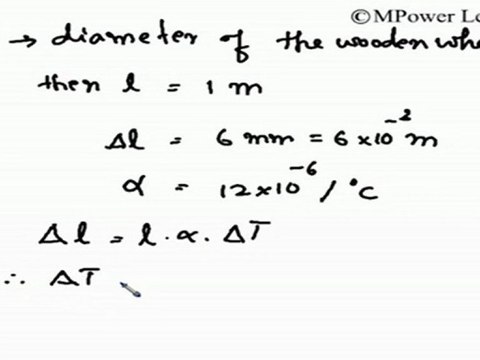 ©MPower
→ diameter of the wooden
then l = 1 m
Δl = 6 mm = 6×10⁻² m
α = 12×10⁻⁶ / °C
Δl = l · α · ΔT
∴ ΔT